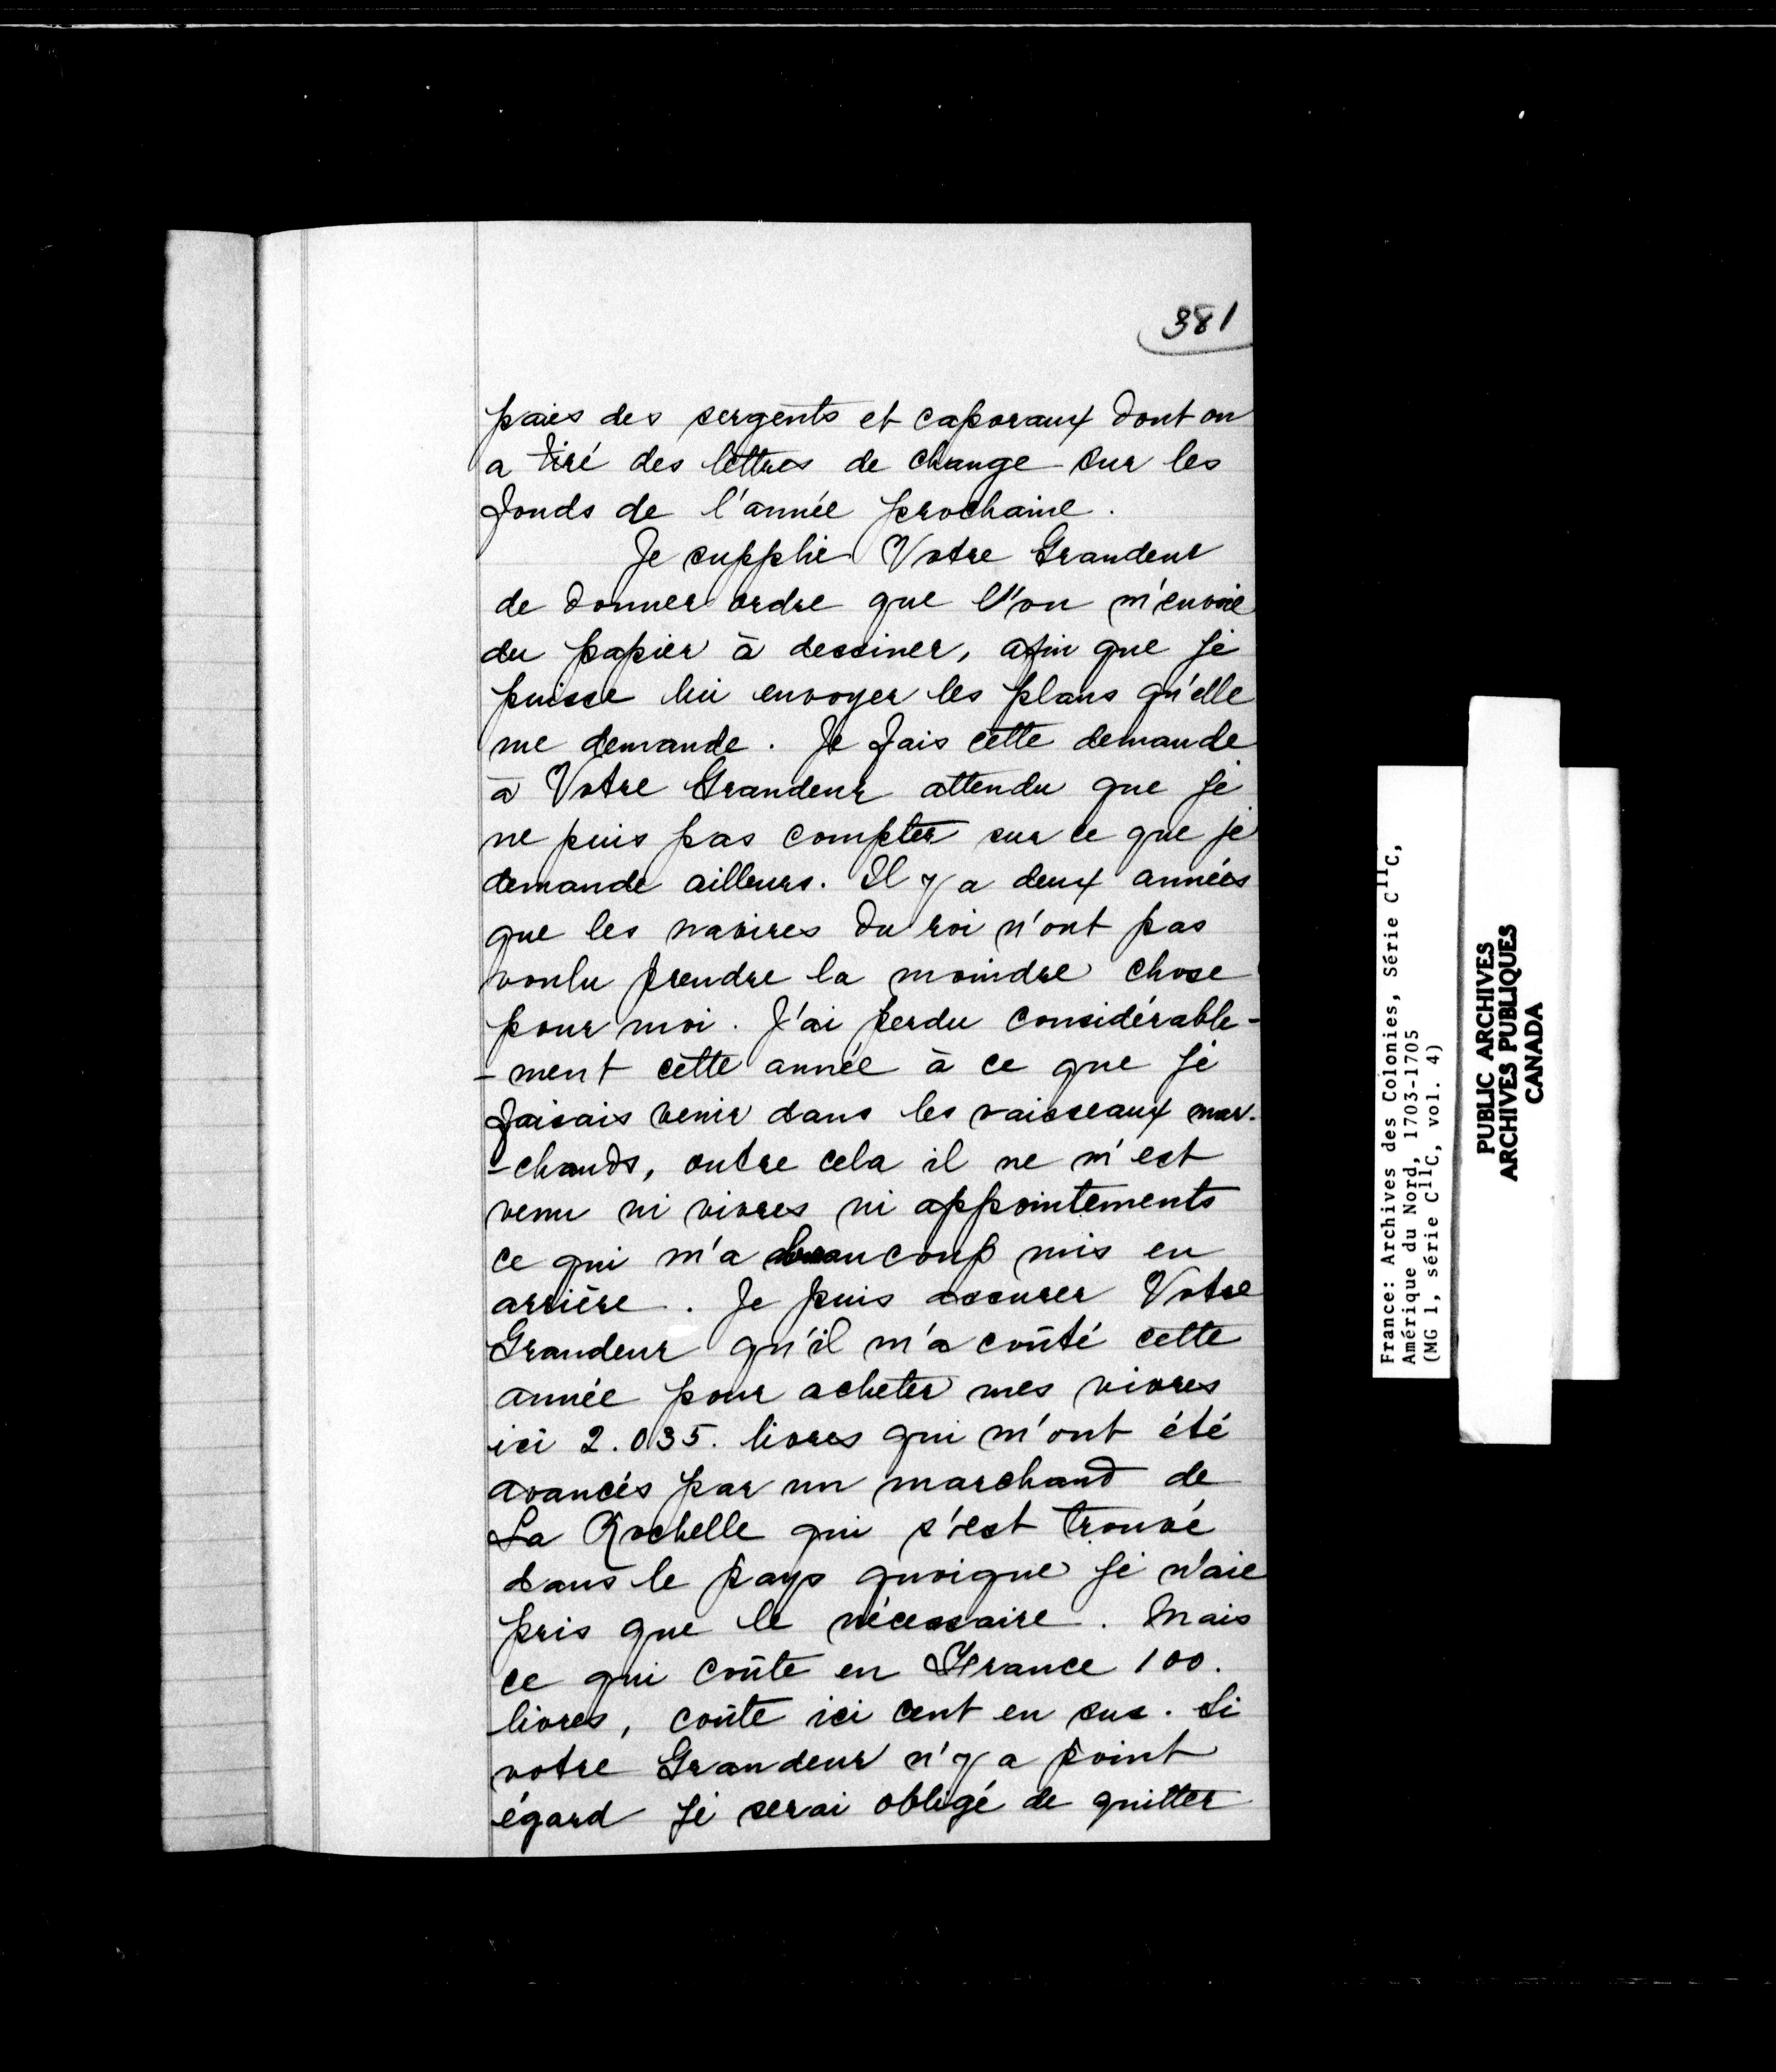 381
paies des sergents et caporaux dont on
a tiré des lettres de change sur les
fonds de l'année prochaine.
Je supplie Votre Grandeur
de donner ordre que l'on m'envoie
du papier à dessiner, afin que je
puisse lui envoyer les plans qu'elle
me demande. Je fais cette demande
à Votre Grandeur attendu que je
ne puis pas compter sur ce que je
demande ailleurs. Il y a deux années
que les navires du roi n'ont pas
voulu prendre la moindre chose
pour moi. J'ai perdu considérable-
-ment cette année à ce que je
faisais venir dans les vaisseaux mar-
-chands, outre cela il ne m'est
venu ni vivres ni appointements
ce qui m'a beaucoup mis en
arrière. Je puis assurer Votre
Grandeur qu'il m'a coûté cette
année pour acheter mes vivres
ici 2.035. livres qui m'ont été
avancés par un marchand de
La Rochelle qui s'est trouvé
dans le pays quoique je n'aie
pris que le nécessaire. Mais
ce qui coûte en France 100.
livres, coûte ici cent en sus. Si
votre Grandeur n'y a point
égard je serai obligé de quitter
France: Archives des Colonies, Série C11C,
Amérique du Nord, 1703-1705
(MG 1, série C11C, vol. 4)
PUBLIC ARCHIVES
ARCHIVES PUBLIQUES
CANADA